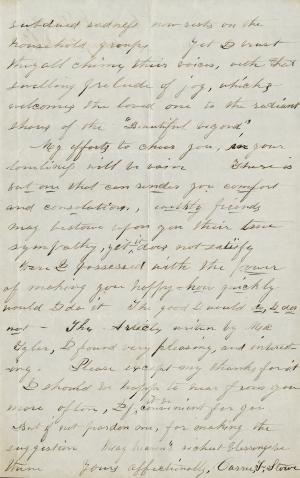 subdued sadness now rests on the
household groups Yet I trust
they all chime their voices, with that
swelling prelude of joy, which
welcomes the loved one to the radiant
shores of the "Beautiful beyond"
My efforts to cheer you, in your
loneliness will be vain There is
but one that can render you comfort
and consolation, earthly friends
may bestow upon you their true
sympathy, yet it does not satisfy
Were I possessed with the power
of making you happy - how quickly
would I do it The good I would do, I do
not - The Article, written by Mr
Tyler, I found very pleasing, and interest-
ing. Please except my thanks for it
I should be happy to hear from you
more often, If, convenient for you
But if not pardon me, for making the
suggestion May heaven's richest blessings be
thine Yours affectionally, Carrie S. Stowe